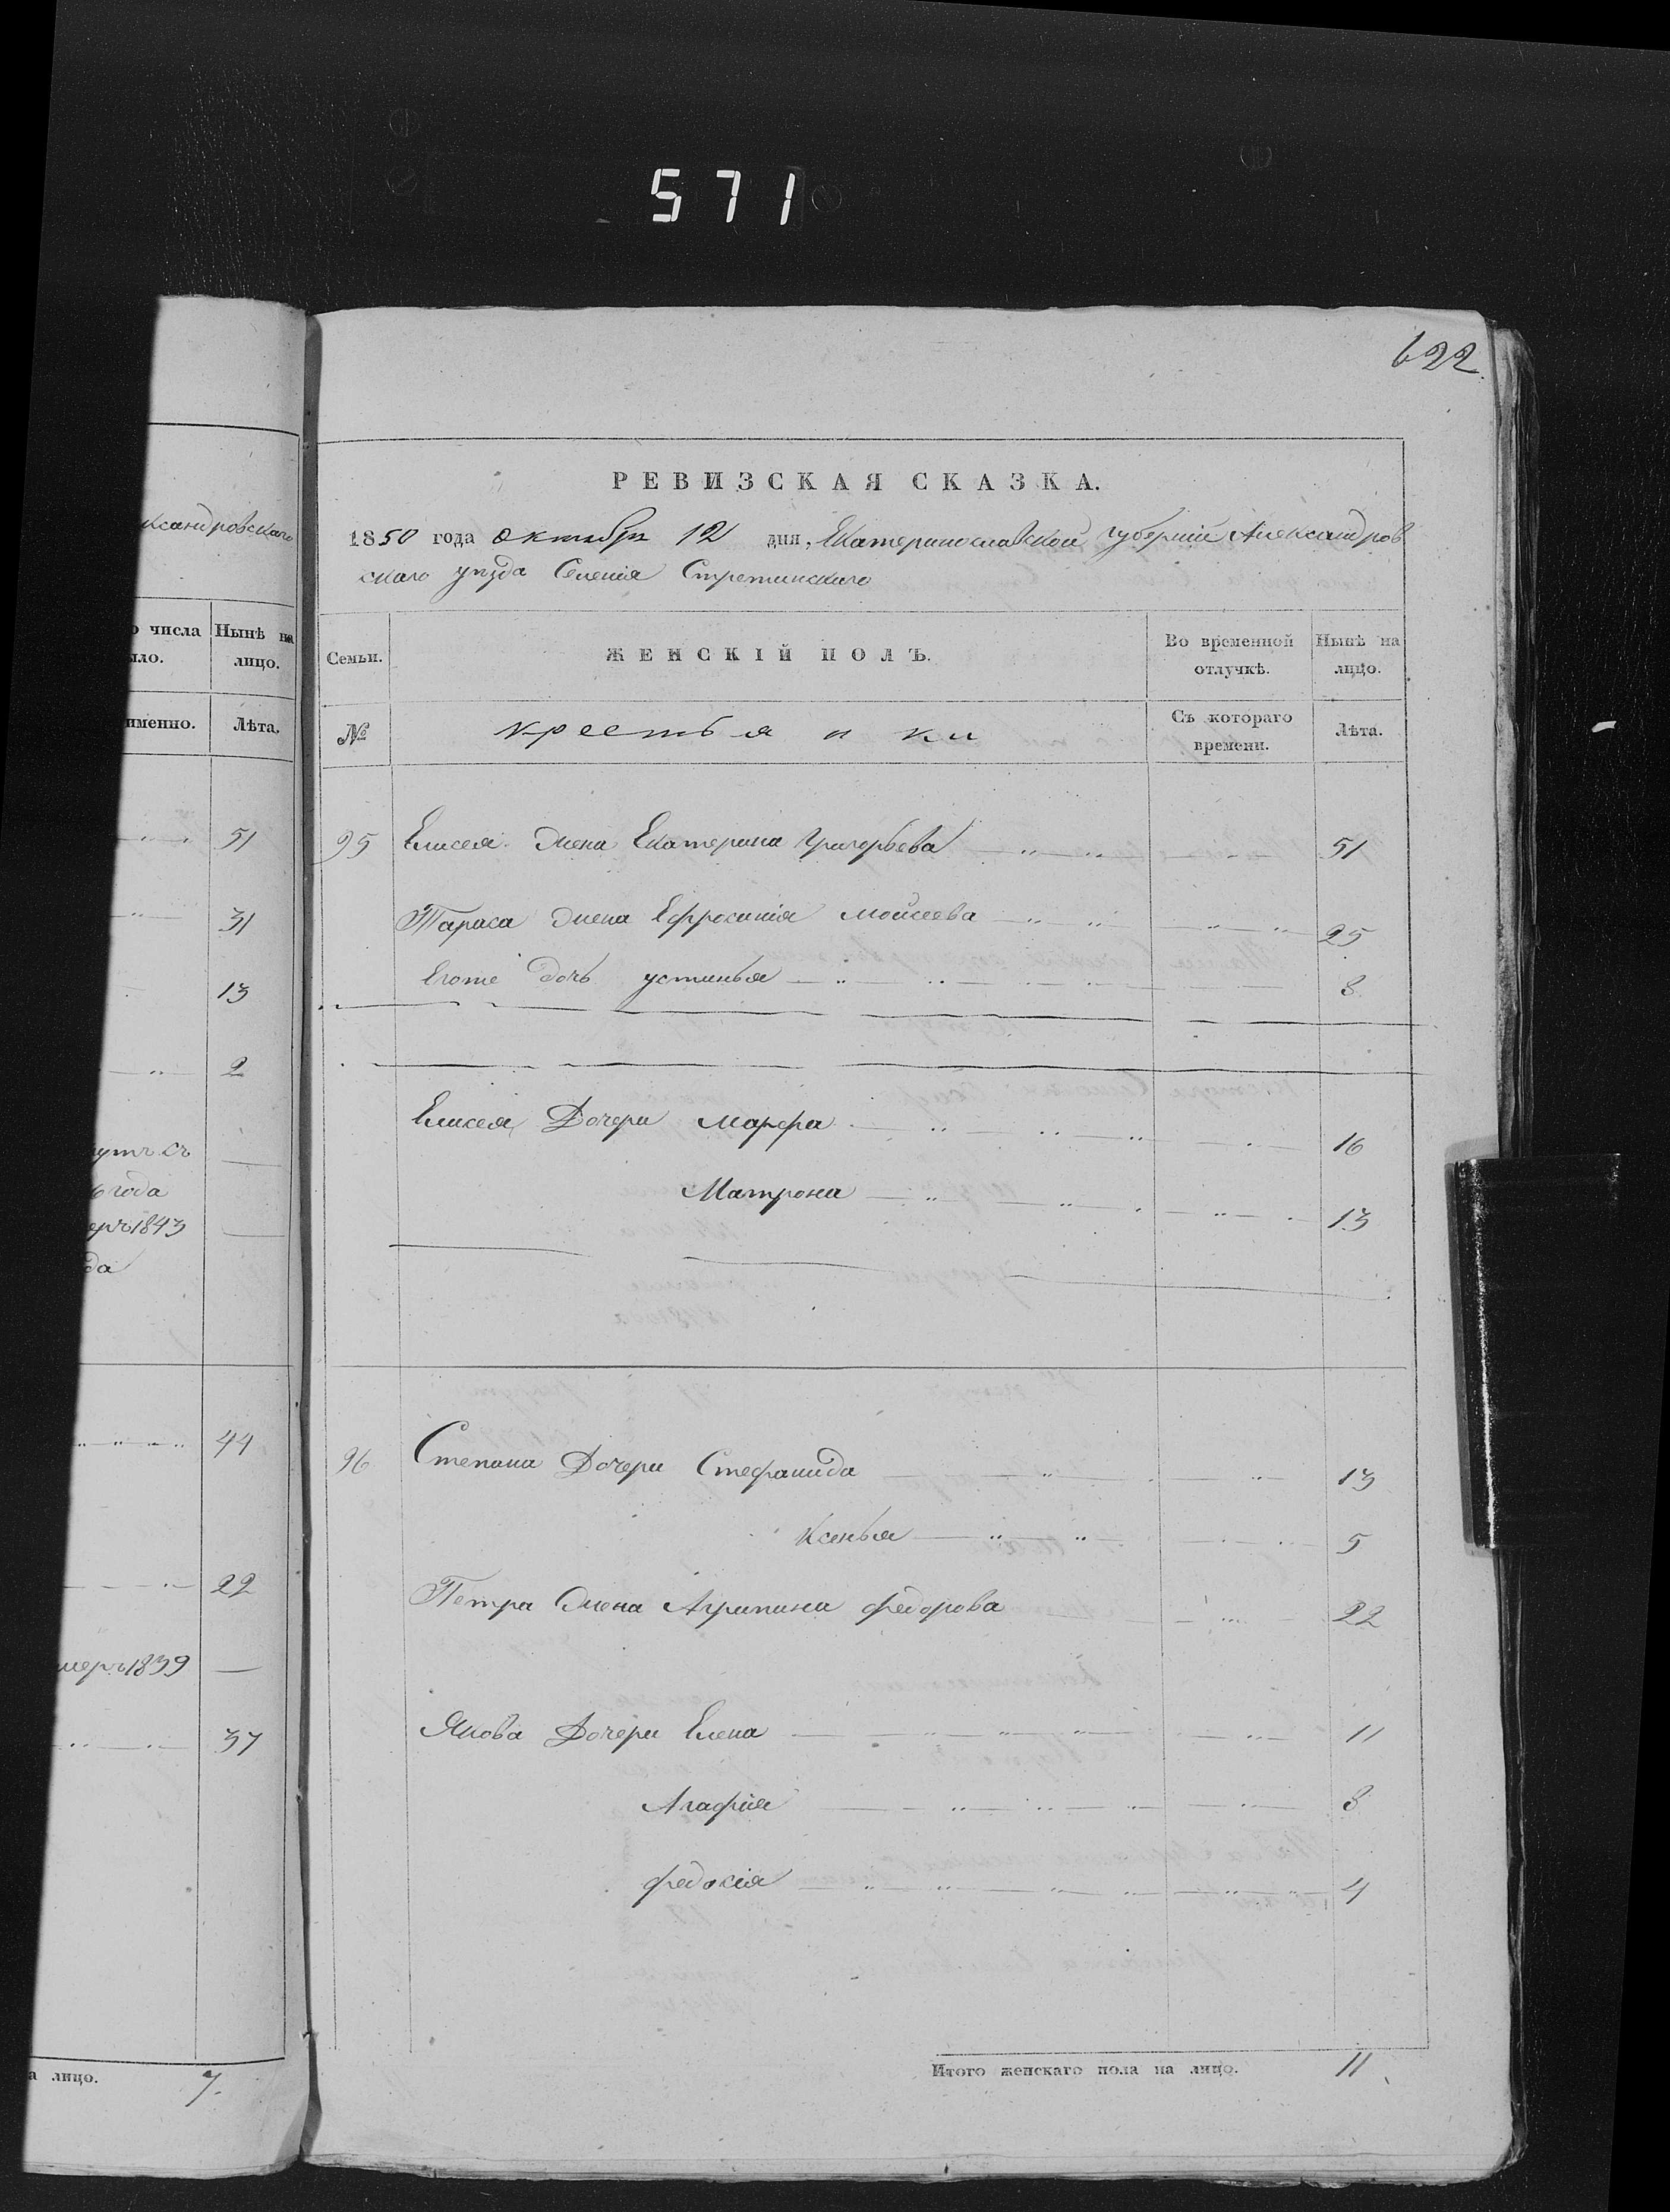 571
622
ксандровскаго
о числа Нынѣ на
ыло. лицо.
именно. Лѣта.
51
31
13
2
6 года
1843
да
44
22
умеръ 1839
37
а лицо. 7.
РЕВИЗСКАЯ СКАЗКА.
1850 года октября 12 дня, Екатеринославской губерніи Александров
скаго уѣзда Селенія Стретинскаго
Семьи. ЖЕНСКІЙ ПОЛЪ. Во временной отлучкѣ. Нынѣ на лицо.
№ крестьянки Съ котораго времени. Лѣта.
95 Елисея жена Екатерина Григорьева 51
Тараса жена Ефросинія Моисеева 25
Егоже дочь устинья 8
Елисея Дочери Марфа 16
Матрона 13
96 Степана Дочери Стефанида 13
Ксенья 5
Петра жена Агрипина федорова 22
Якова Дочери Елена 11
Агафія 8
федосія 4
Итого женскаго пола на лицо. 11